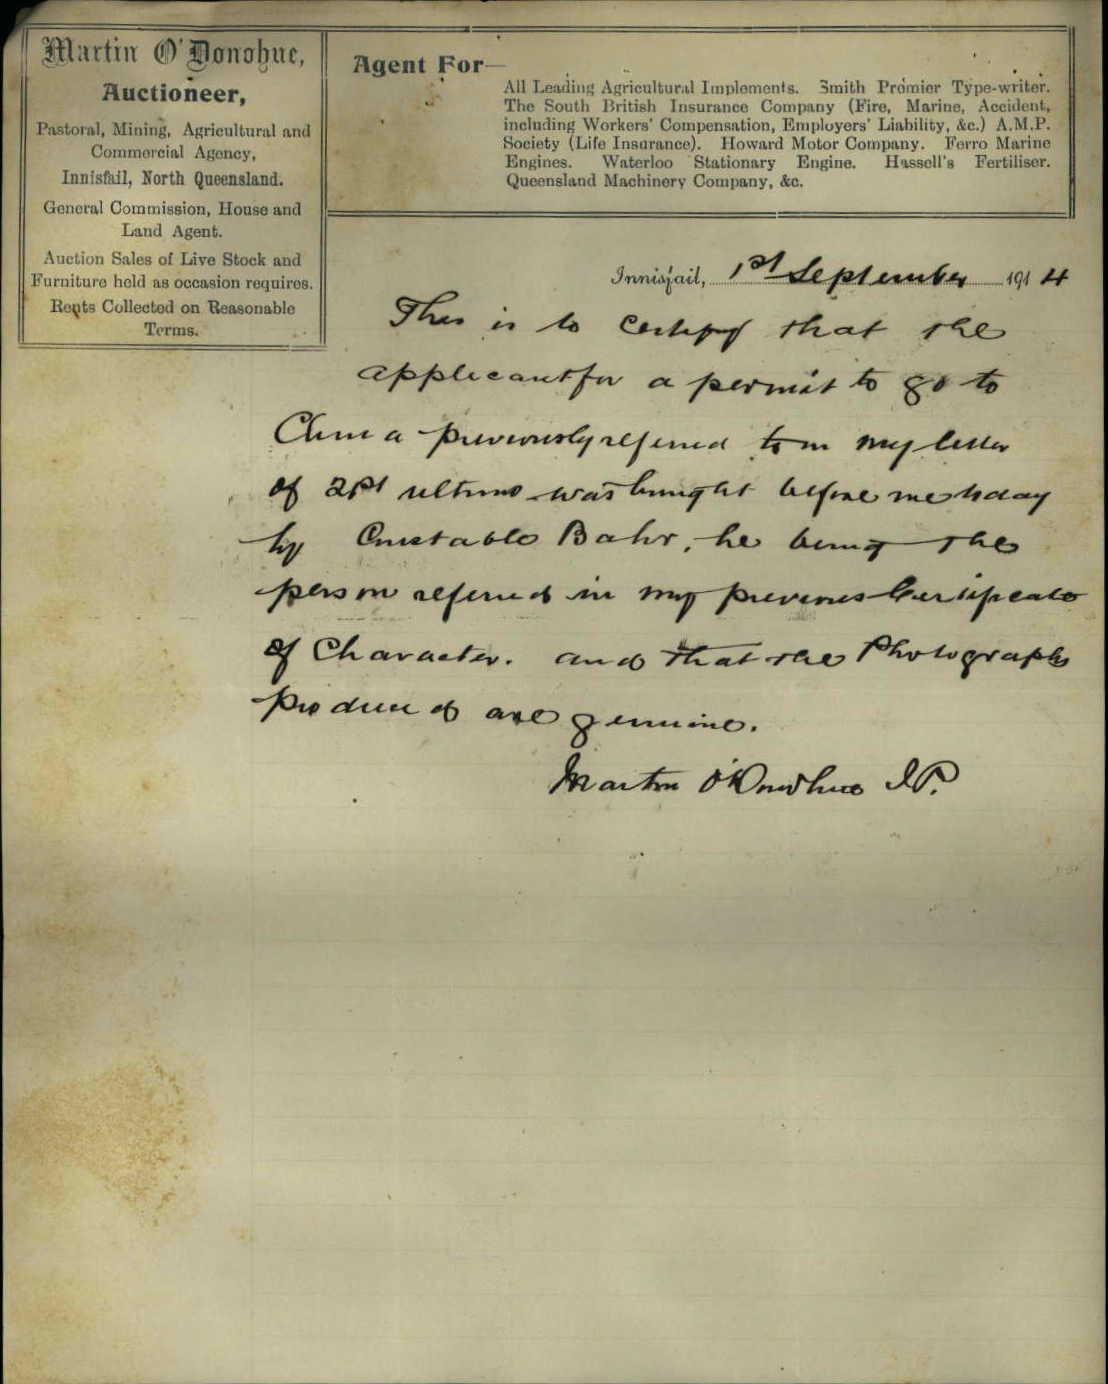 Martin O'Donohue,
Auctioneer,
Pastoral, Mining, Agricultural and
Commercial Agency,
Innisfail, North Queensland.
General Commission, House and
Land Agent.
Auction Sales of Live Stock and
Furniture held as occasion requires.
Rents Collected on Reasonable
Terms.
Agent For—
All Leading Agricultural Implements. Smith Premier Type-writer.
The South British Insurance Company (Fire, Marine, Accident,
including Workers' Compensation, Employers' Liability, &c.) A.M.P.
Society (Life Insurance). Howard Motor Company. Ferro Marine
Engines. Waterloo Stationary Engine. Hassell's Fertiliser.
Queensland Machinery Company, &c.
Innisfail, 1st September 1914
This is to certify that the
applicant for a permit to go to
China previously referred to in my letter
of 21st ultimo was brought before me today
by Constable Bahr, he being the
person referred in my previous Certificate
of Character. and that the Photographs
produced are genuine.
Martin O'Donohue J.P.